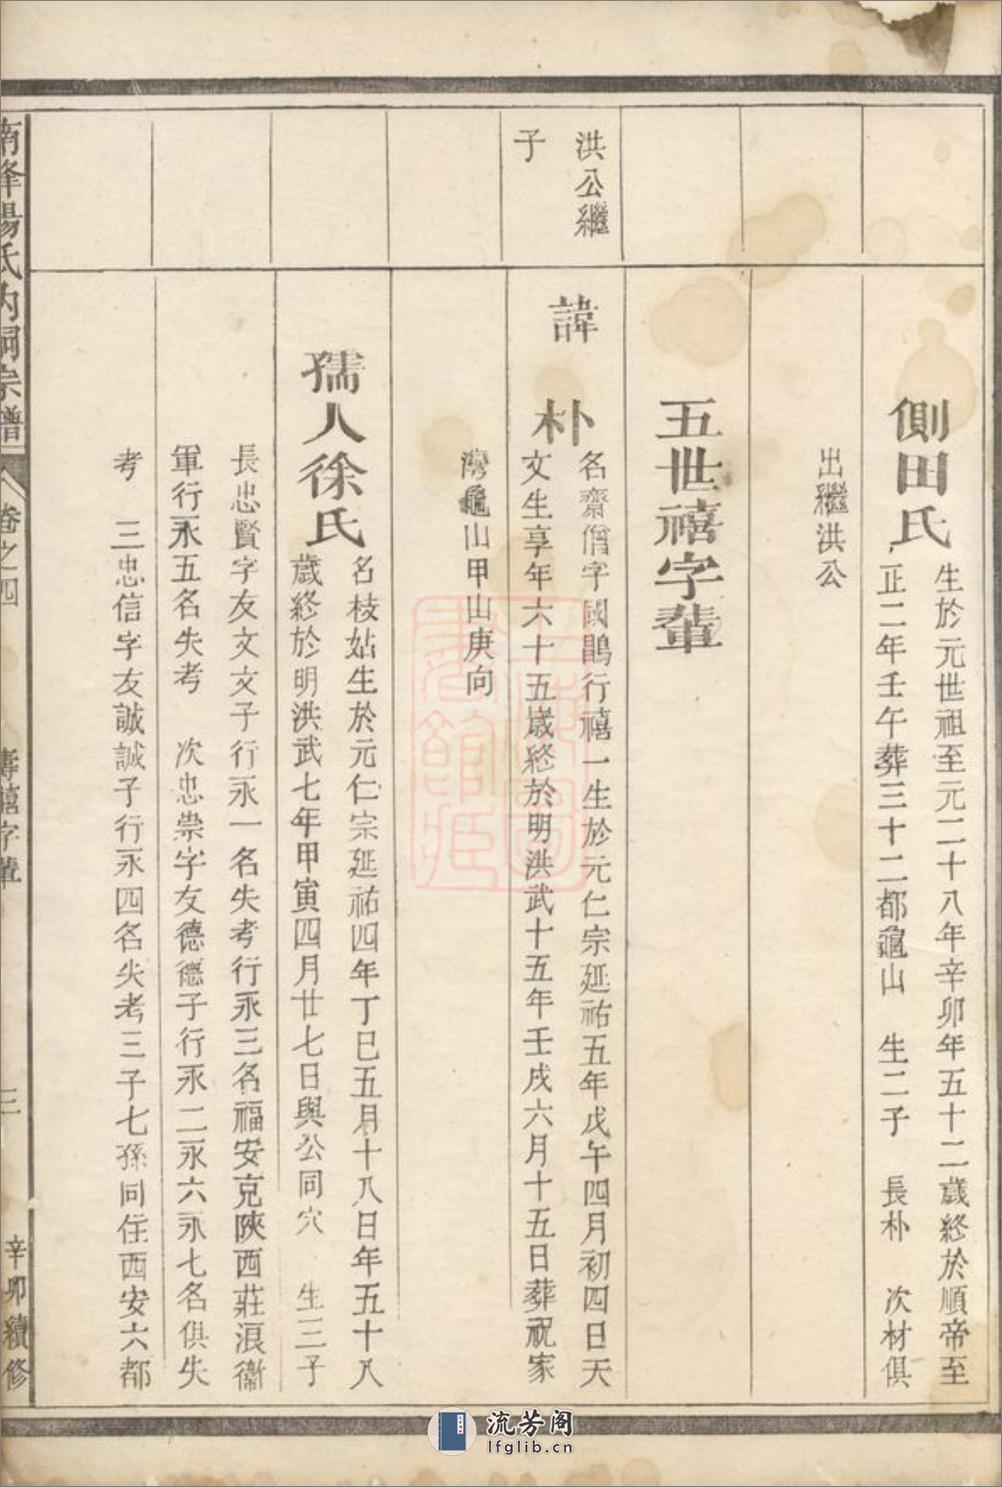 側田氏
生於元世祖至元二十八年辛卯年五十二歲終於順帝至
正二年壬午葬三十二都龜山　生二子　長朴　次材俱
出繼洪公
五世禧字輩
洪公繼
子
諱　朴
名齋僧字國鵑行禧一生於元仁宗延祐五年戊午四月初四日天
文生享年六十五歲終於明洪武十五年壬戌六月十五日葬祝家
灣龜山甲山庚向
孺人徐氏
名枝姑生於元仁宗延祐四年丁巳五月十八日年五十八
歲終於明洪武七年甲寅四月廿七日與公同穴　生三子
長忠賢字友文文子行永一名失考行永三名福安克陝西莊浪衞
軍行永五名失考　次忠崇字友德德子行永二永六永七名俱失
考　三忠信字友誠誠子行永四名失考三子七孫同住西安六都
南峰楊氏內祠宗譜
卷之四
壽禧字輩
三
辛卯續修
流芳阁
lfglib.cn